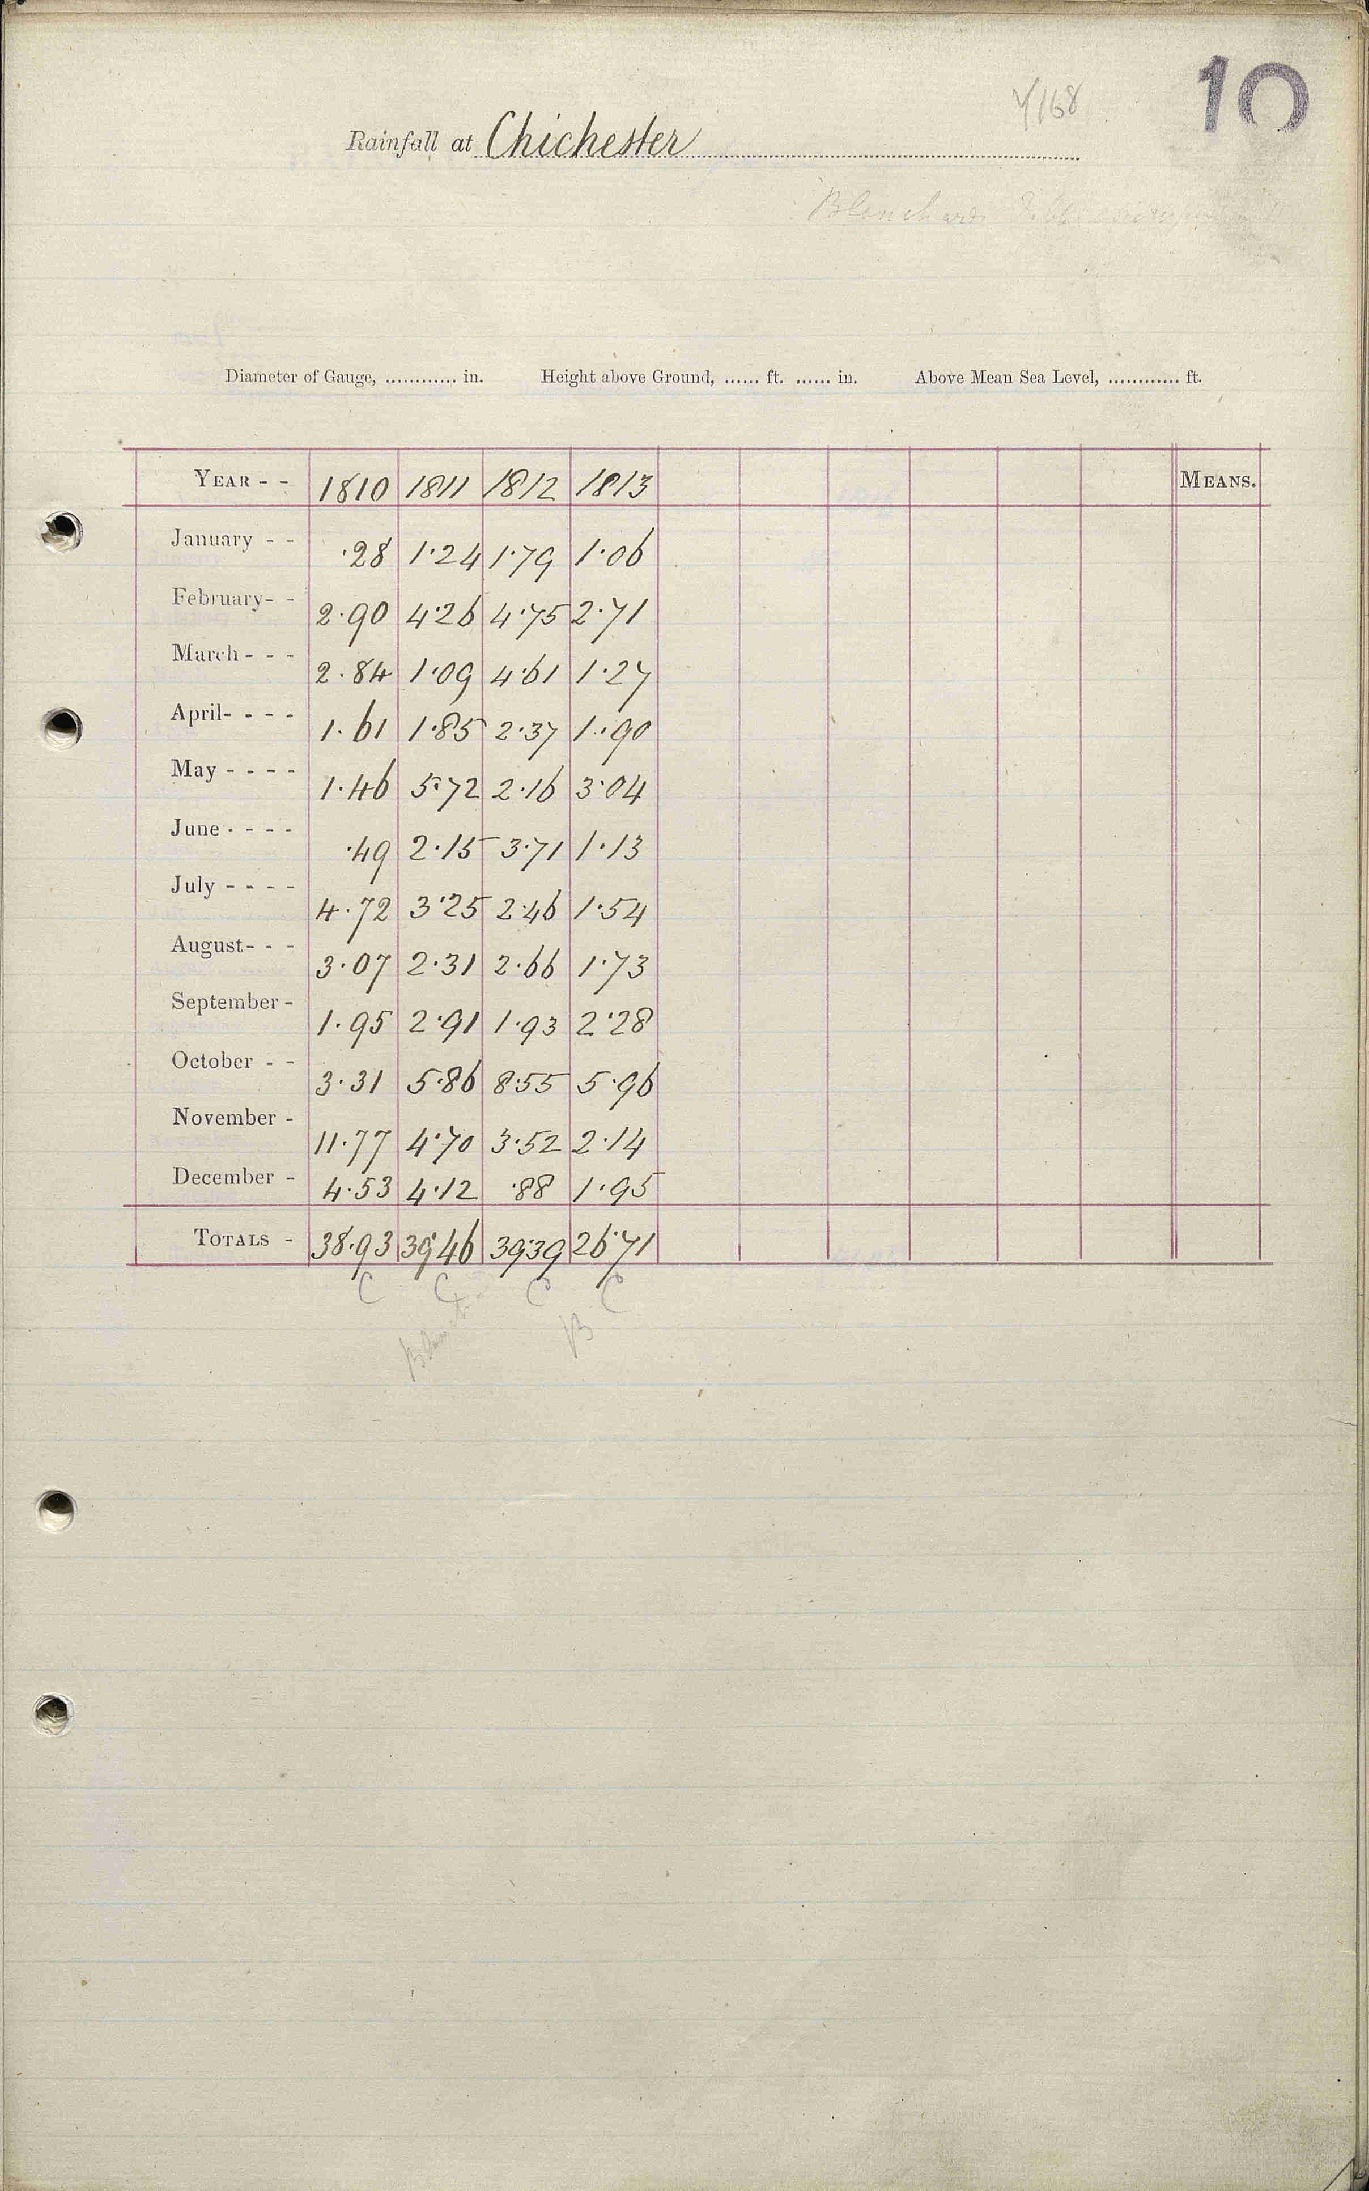 10
Rainfall at Chichester
Diameter of Gauge, ............ in. Height above Ground, ...... ft. ...... in. Above Mean Sea Level, ............ ft.
YEAR - - 1810 1811 1812 1813 MEANS.
January - - ·28 1·24 1·79 1·06
February - - 2·90 4·26 4·75 2·71
March - - - 2·84 1·09 4·61 1·27
April - - - - 1·61 1·85 2·37 1·90
May - - - - 1·46 5·72 2·16 3·04
June - - - - ·49 2·15 3·71 1·13
July - - - - 4·72 3·25 2·46 1·54
August - - - 3·07 2·31 2·66 1·73
September - 1·95 2·91 1·93 2·28
October - - 3·31 5·86 8·55 5·96
November - 11·77 4·70 3·52 2·14
December - 4·53 4·12 ·88 1·95
TOTALS - 38·93 39·46 39·39 26·71
C C C C
B